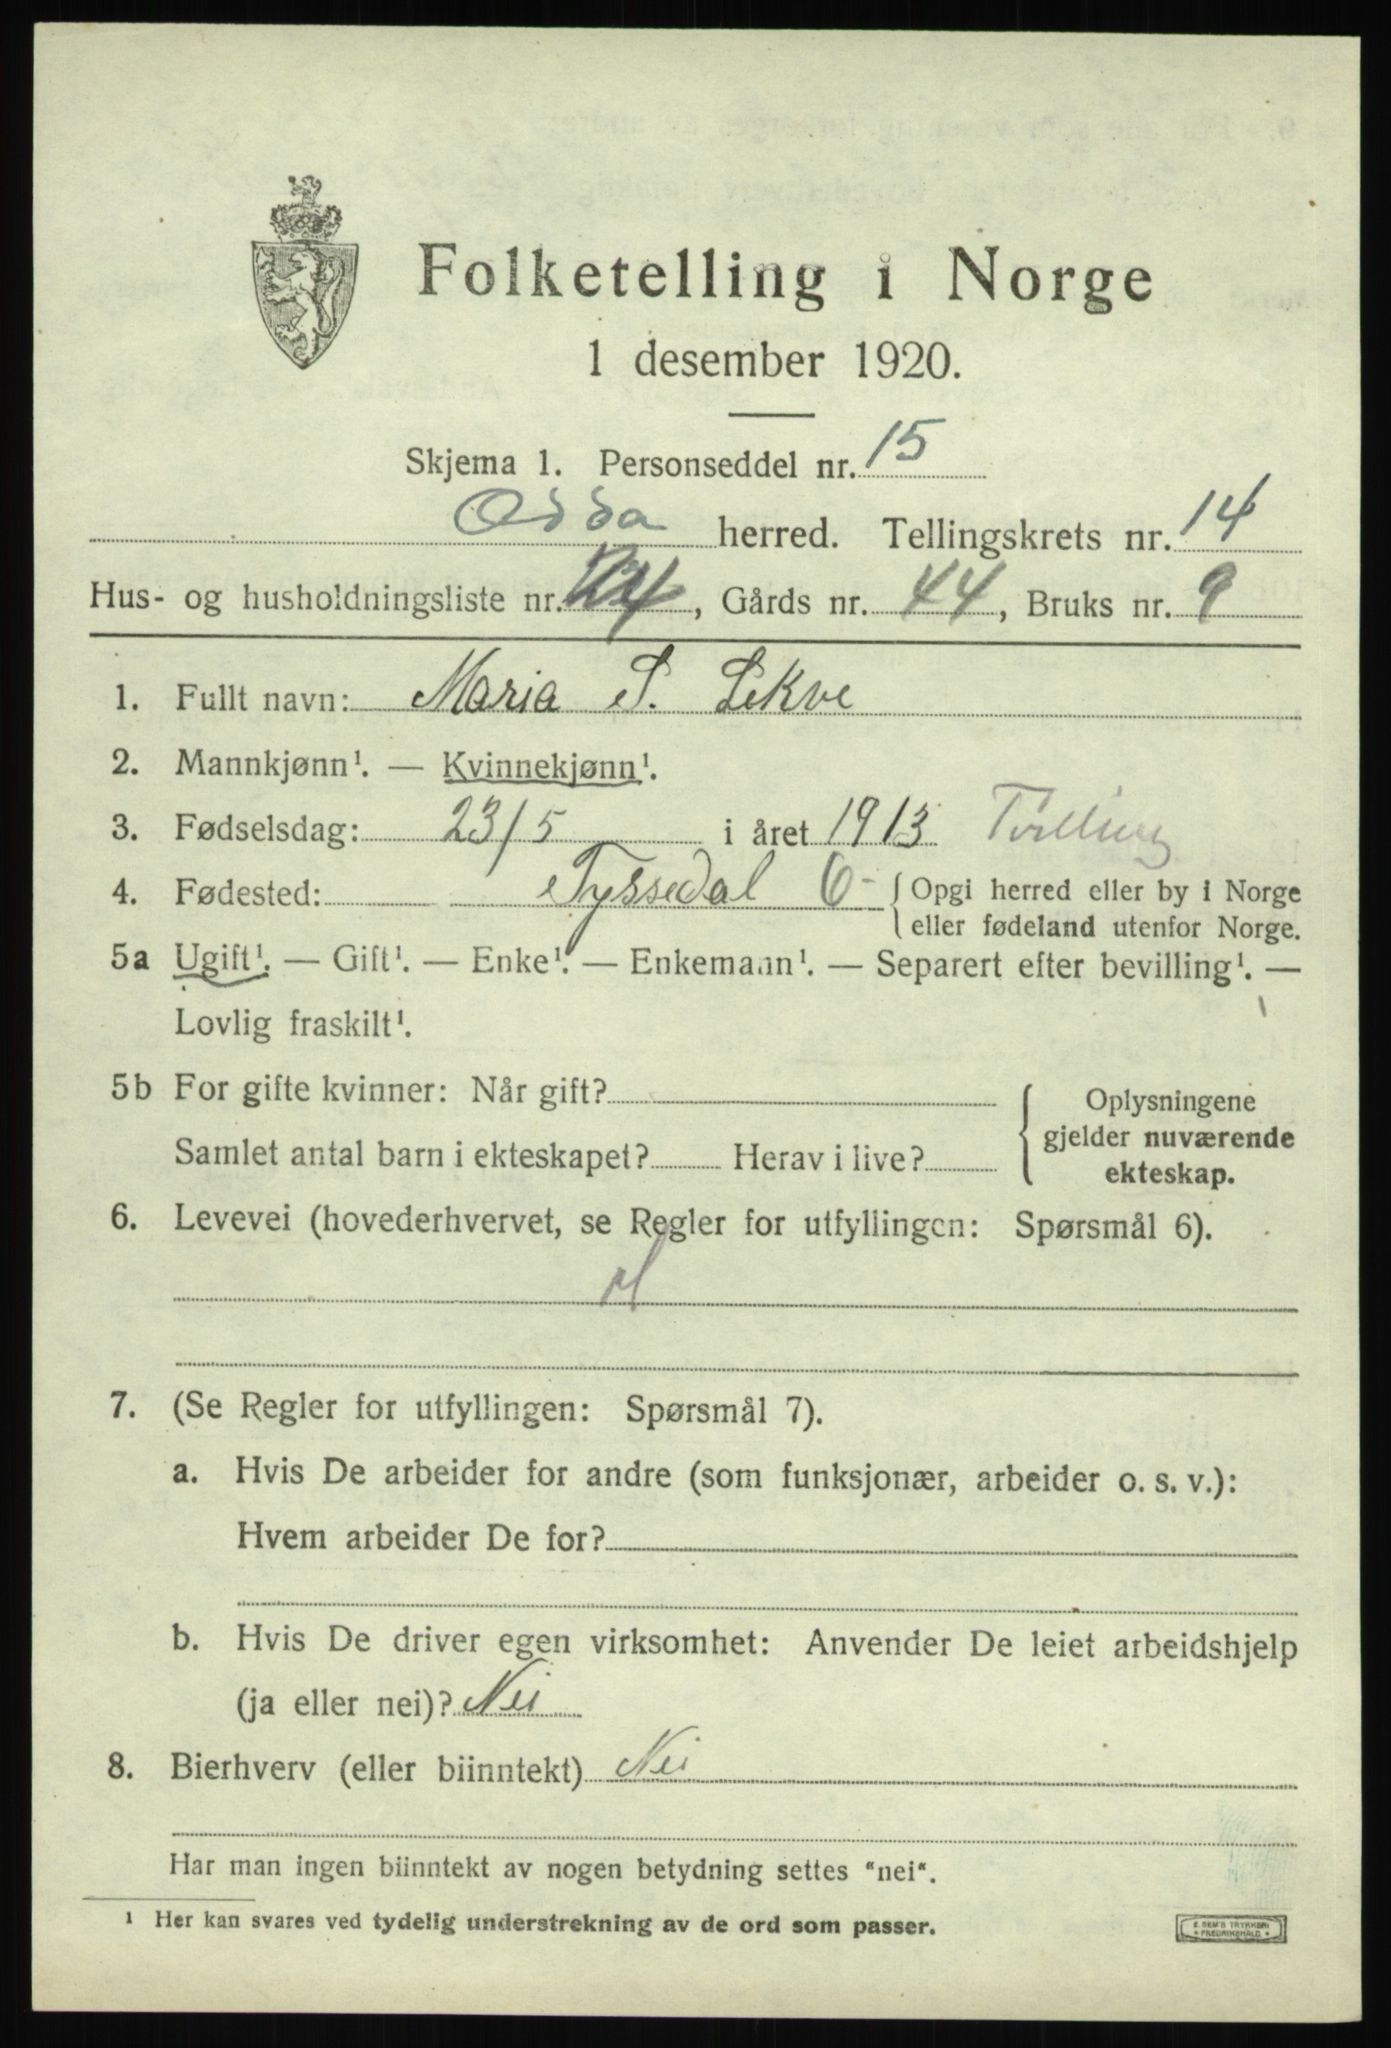 Folketelling i Norge
1 desember 1920.
Skjema 1. Personseddel nr. 15
Odda herred. Tellingskrets nr. 14
Hus- og husholdningsliste nr. 24, Gårds nr. 44, Bruks nr. 9
1. Fullt navn: Maria S. Lekve
2. Mannkjønn¹. — Kvinnekjønn¹.
3. Fødselsdag: 23/5 i året 1913 Tvilling
4. Fødested: Tyssedal { Opgi herred eller by i Norge
eller fødeland utenfor Norge.
5a Ugift¹. — Gift¹. — Enke¹. — Enkemann¹. — Separert efter bevilling¹. —
Lovlig fraskilt¹.
5b For gifte kvinner: Når gift?
Samlet antal barn i ekteskapet? Herav i live?
{ Oplysningene
gjelder nuværende
ekteskap.
6. Levevei (hovederhvervet, se Regler for utfyllingen: Spørsmål 6).
7. (Se Regler for utfyllingen: Spørsmål 7).
a. Hvis De arbeider for andre (som funksjonær, arbeider o. s. v.):
Hvem arbeider De for?
b. Hvis De driver egen virksomhet: Anvender De leiet arbeidshjelp
(ja eller nei)? Nei
8. Bierhverv (eller biinntekt) Nei
Har man ingen biinntekt av nogen betydning settes "nei".
¹ Her kan svares ved tydelig understrekning av de ord som passer.
E. SEM'S TRYKKERI
FREDRIKSHALD.